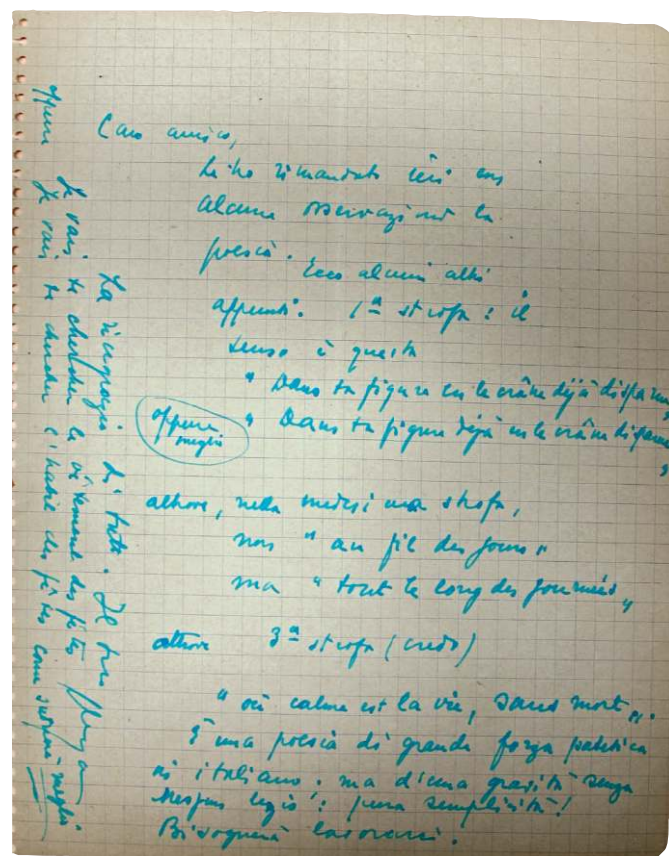 Caro amico,
Le ho rimandato ieri con
alcune osservazioni la
poesia. Ecco alcuni altri
appunti. 1ª strofa: il
senso è questo
" Dans ta figure en le crâne déjà disparue
oppure meglio " Dans ta figure déjà en le crâne disparue "
altrove, nella medesima strofa,
non " au fil des jours "
ma " tout le long des journées "
altrove 3ª strofa (credo)
" où calme est la vie, sans mort ".
È una poesia di grande forza patetica
in italiano: ma d'una gravità senza
: pura semplicità!
Bisognerà lavorarci.
La ringrazio di tutto. Il suo
Je vais te chercher le vêtement des fêtes
oppure Je vais te chercher l'habit des fêtes come suona meglio